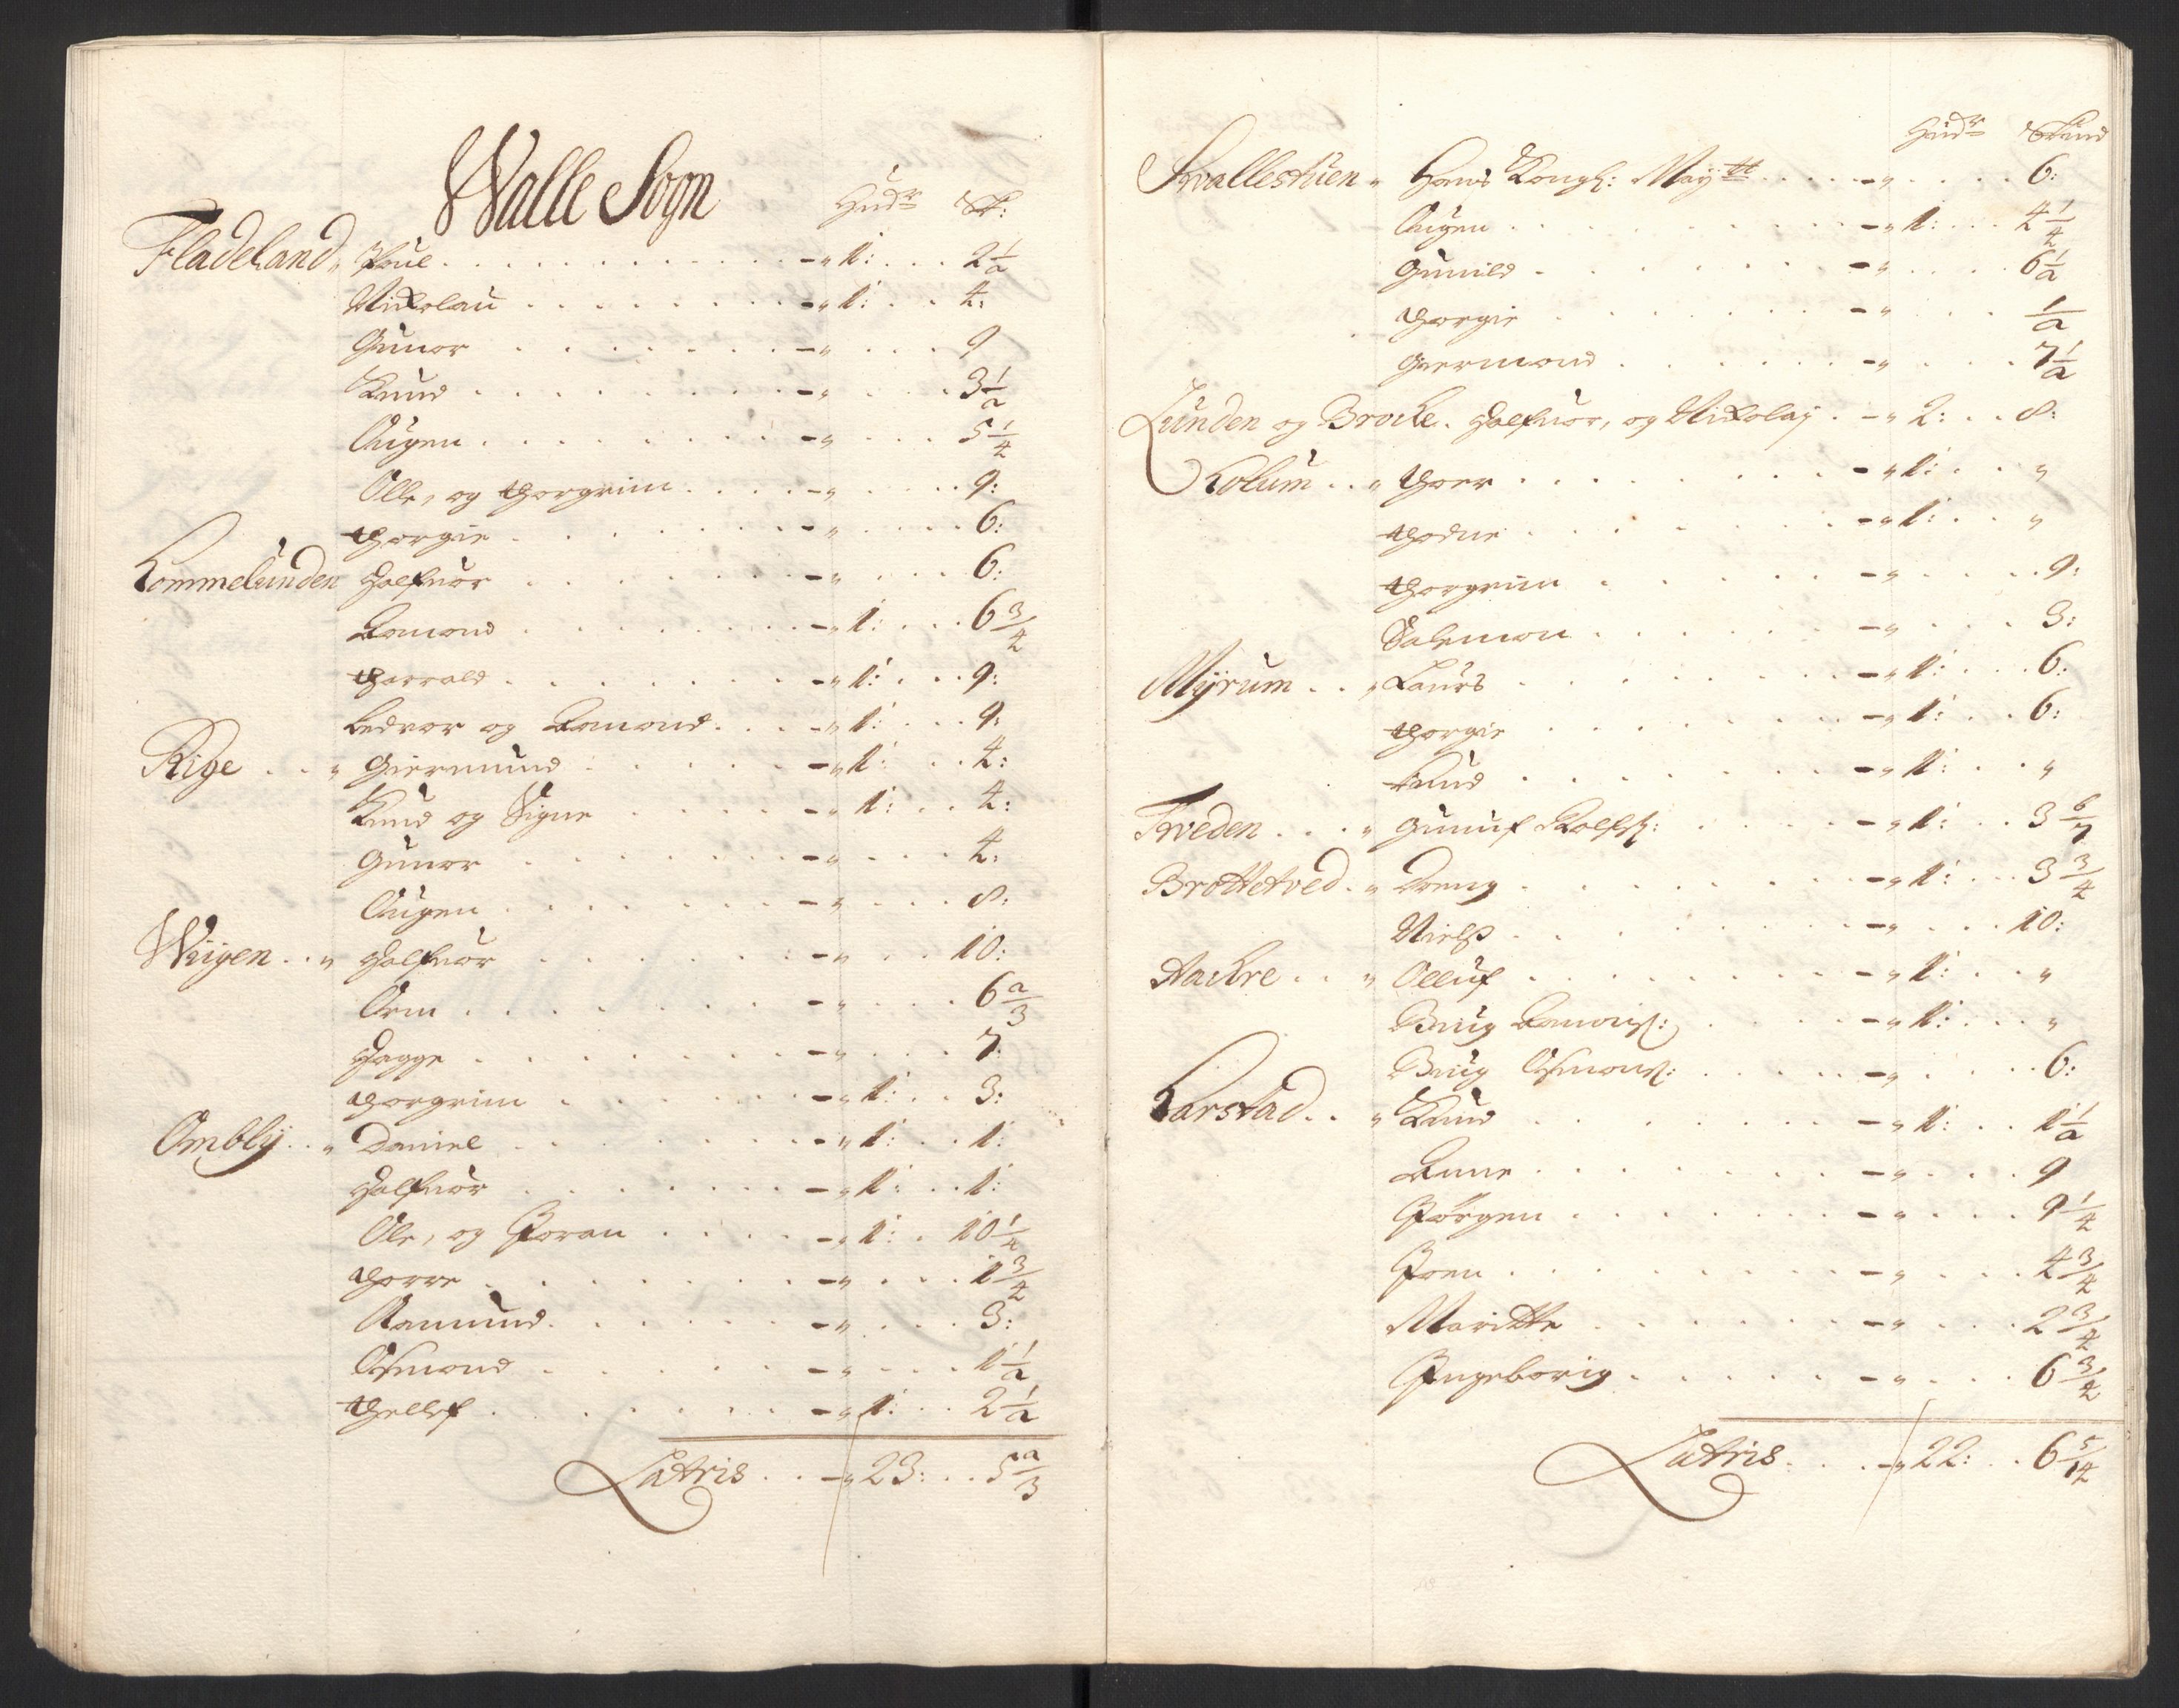 Walle Sogn
Hudr Sk:
Fladeland „ Poúl - „ 1: 2 1/2
Nickolaú - „ 1: 4:
Gúnor - „ 9
Knúd - „ 3 1/2
Aúgen - „ 5 1/4
Olle, og Thorgrim - „ 9:
Thorgie - „ 6:
Rommelúnden Halfúor - „ 6:
Aamond - „ 1: 6 3/4
Tharald - „ 1: 9:
Ledvor og Aamond - „ 1: 9:
Rige „ Giermúnd - „ 1: 4:
Knúd og Signe - „ 1: 4:
Gúnor - „ 4:
Aúgen - „ 8:
Wiigen „ Halfúor - „ 10:
Orm - „ 6 2/3
Hagge - „ 7:
Thorgrim - „ 1: 3:
Ombly „ Daniel - „ 1: 1:
Halfúor - „ 1: 1:
Ole, og Joran - „ 1: 10 1/4
Thorre - „ 1 3/4
Aamúnd - „ 3:
Osmond - „ 1 1/2
Thellef - „ 1: 2 1/2
Latris - „ 23: 5 2/3
Húdr Skind
Kvallestúen „ Hans Kongl: Maytt - „ 6:
Aúgen - „ 1: 4 1/4
Gúnild - „ 6 1/2
Thorgie - „ 1/2
Giermond - „ 7 1/2
Lúnden og Brocke. Halfúor, og Nickolay - „ 2: 8:
Holúm „ Thoer - „ 1: „
Thodne - „ 1: „
Thorgrim - „ 9:
Salemon - „ 3:
Myrúm „ Laúrs - „ 1: 6:
Thorgie - „ 1: 6:
Knúd - „ 1: „
Tveden „ Gúnúf Rolfs: - „ 1: 3 6/7
Brottetved „ Dreng - „ 1: 3 3/4
Nielß - „ 10:
Aackre „ Ollúf - „ 1: „
Biúg Aamons: - „ 1: „
Biúg Osmons: - „ 6:
Harstad „ Knúd - „ 1: 1 1/2
Anne - „ 9
Jörgen - „ 9 1/4
Joen - „ 4 3/4
Maritte - „ 2 3/4
Ingeborig - „ 6 3/4
Latris - „ 22: 6 5/14